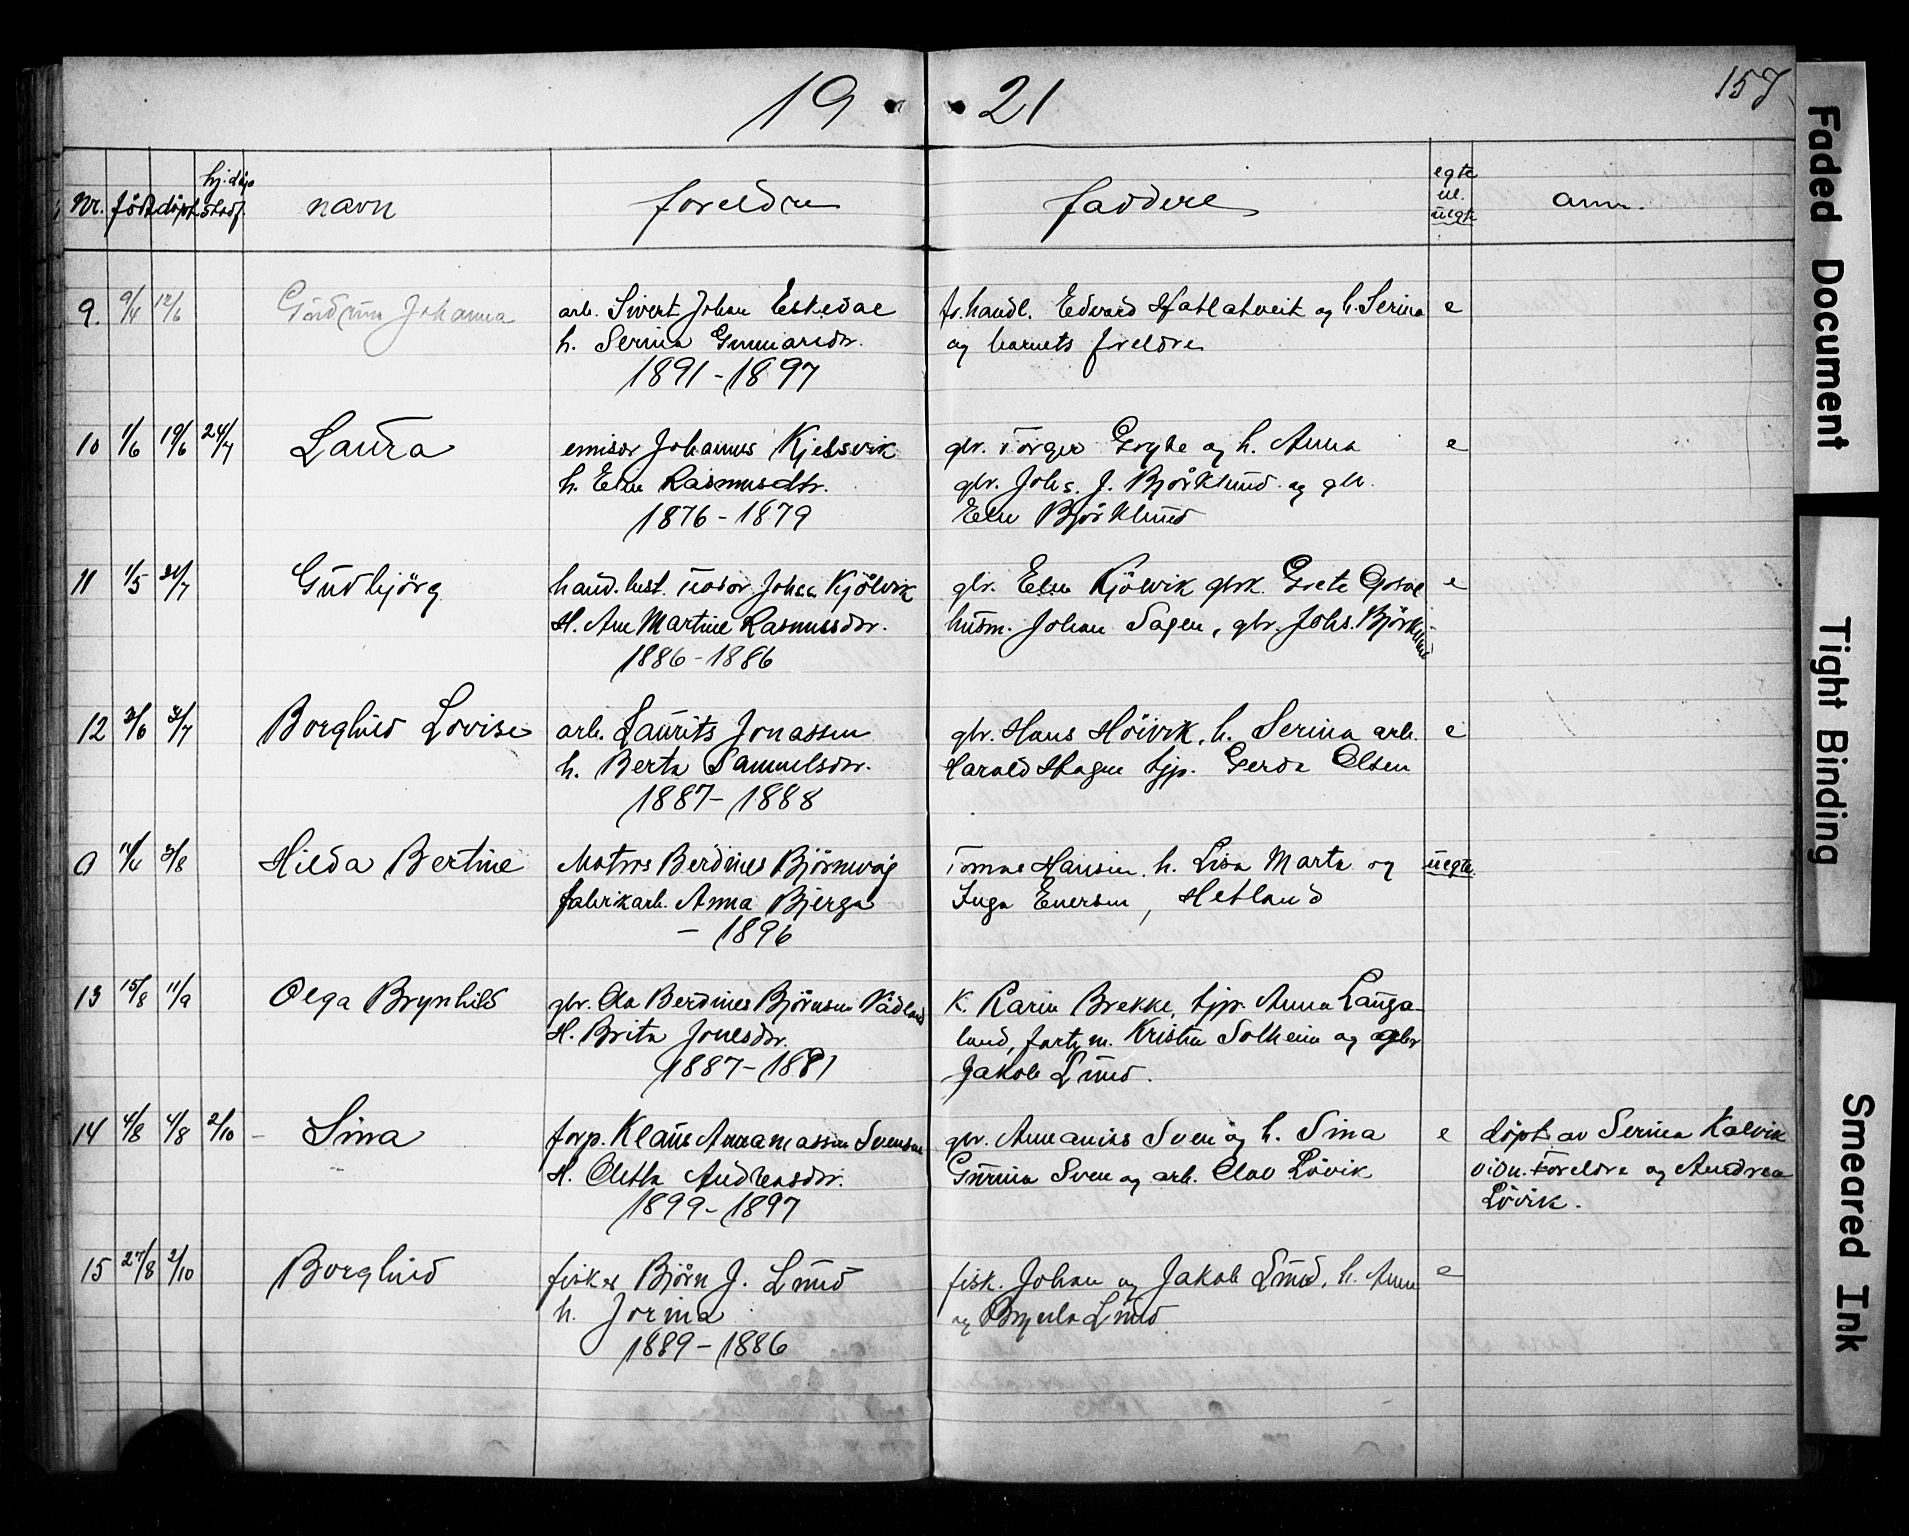 19 21
157
Nr. född döpt hj.döp stadf. navn foreldre faddere egte el. uegte anm.
9. 9/4 12/6 Gudrun Johanna arb. Sivert Johan Eskedal fr.handl. Edvard Hatlatveit og h. Serina e
h. Serina Gunnarsdr. og barnets foreldre
1891-1897
10 1/6 19/6 24/7 Laura emisær Johannes Kjelsvik gbr. Torger Grytte og h. Anna e
h. Else Rasmusdtr. gbr. Johs. J. Björklund og gbr.
1876-1879 Else Björklund
11 1/5 31/7 Gudbjörg hand.best. Teodor Johan Kjölvik gbr. Else Kjölvik gbrk. Grete e
H. Ane Martine Rasmussdr. husm. Johan Sagen, gbr. Johs. Björklund
1886-1886
12 3/6 31/7 Borghild Lovise arb. Laurits Jonassen gbr. Hans Höivik, h. Serina arb. e
h. Berta Samuelsdr. Harald Hagen tjp. Gerda Olsen
1887-1888
9 3/8 Hilda Bertine Matros Berdines Björnevåg Tomas Hansen, h. Lisa Marta og uegte
fabrikarb. Anna Bjerga Inga Enersen, Hetland
- 1896
13 15/8 11/9 Olga Brynhild gbr. Ola Berdines Björnsen Vådland K. Karin Brekke, tjp. Anna Langa-
H. Brita Jonesdr. land, Kristen Solheim og gbr
1887-1881 Jakob Lund.
14 4/8 4/8 2/10 - Sina forp. Klaus Annamassen Svensen gbr. Annanias Sven og h. Sina e döpt av Serina Kalvik
H. Oletta Andreasdr. Gurina Sven og arb. Olav Lövik vidn. Foreldre og Andrea
1899-1897 Lövik.
15 27/8 2/10 Borghild fisker Björn J. Lund fisk. Johan og Jakob Lund, h. Anne e
h. Jorina og Lund
1889-1886
Faded Document
Tight Binding
Smeared Ink